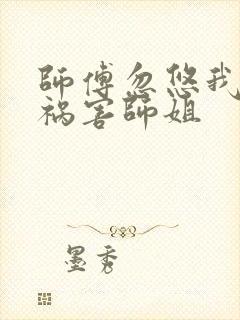 師傅忽悠我
祸害師姐
墨秀